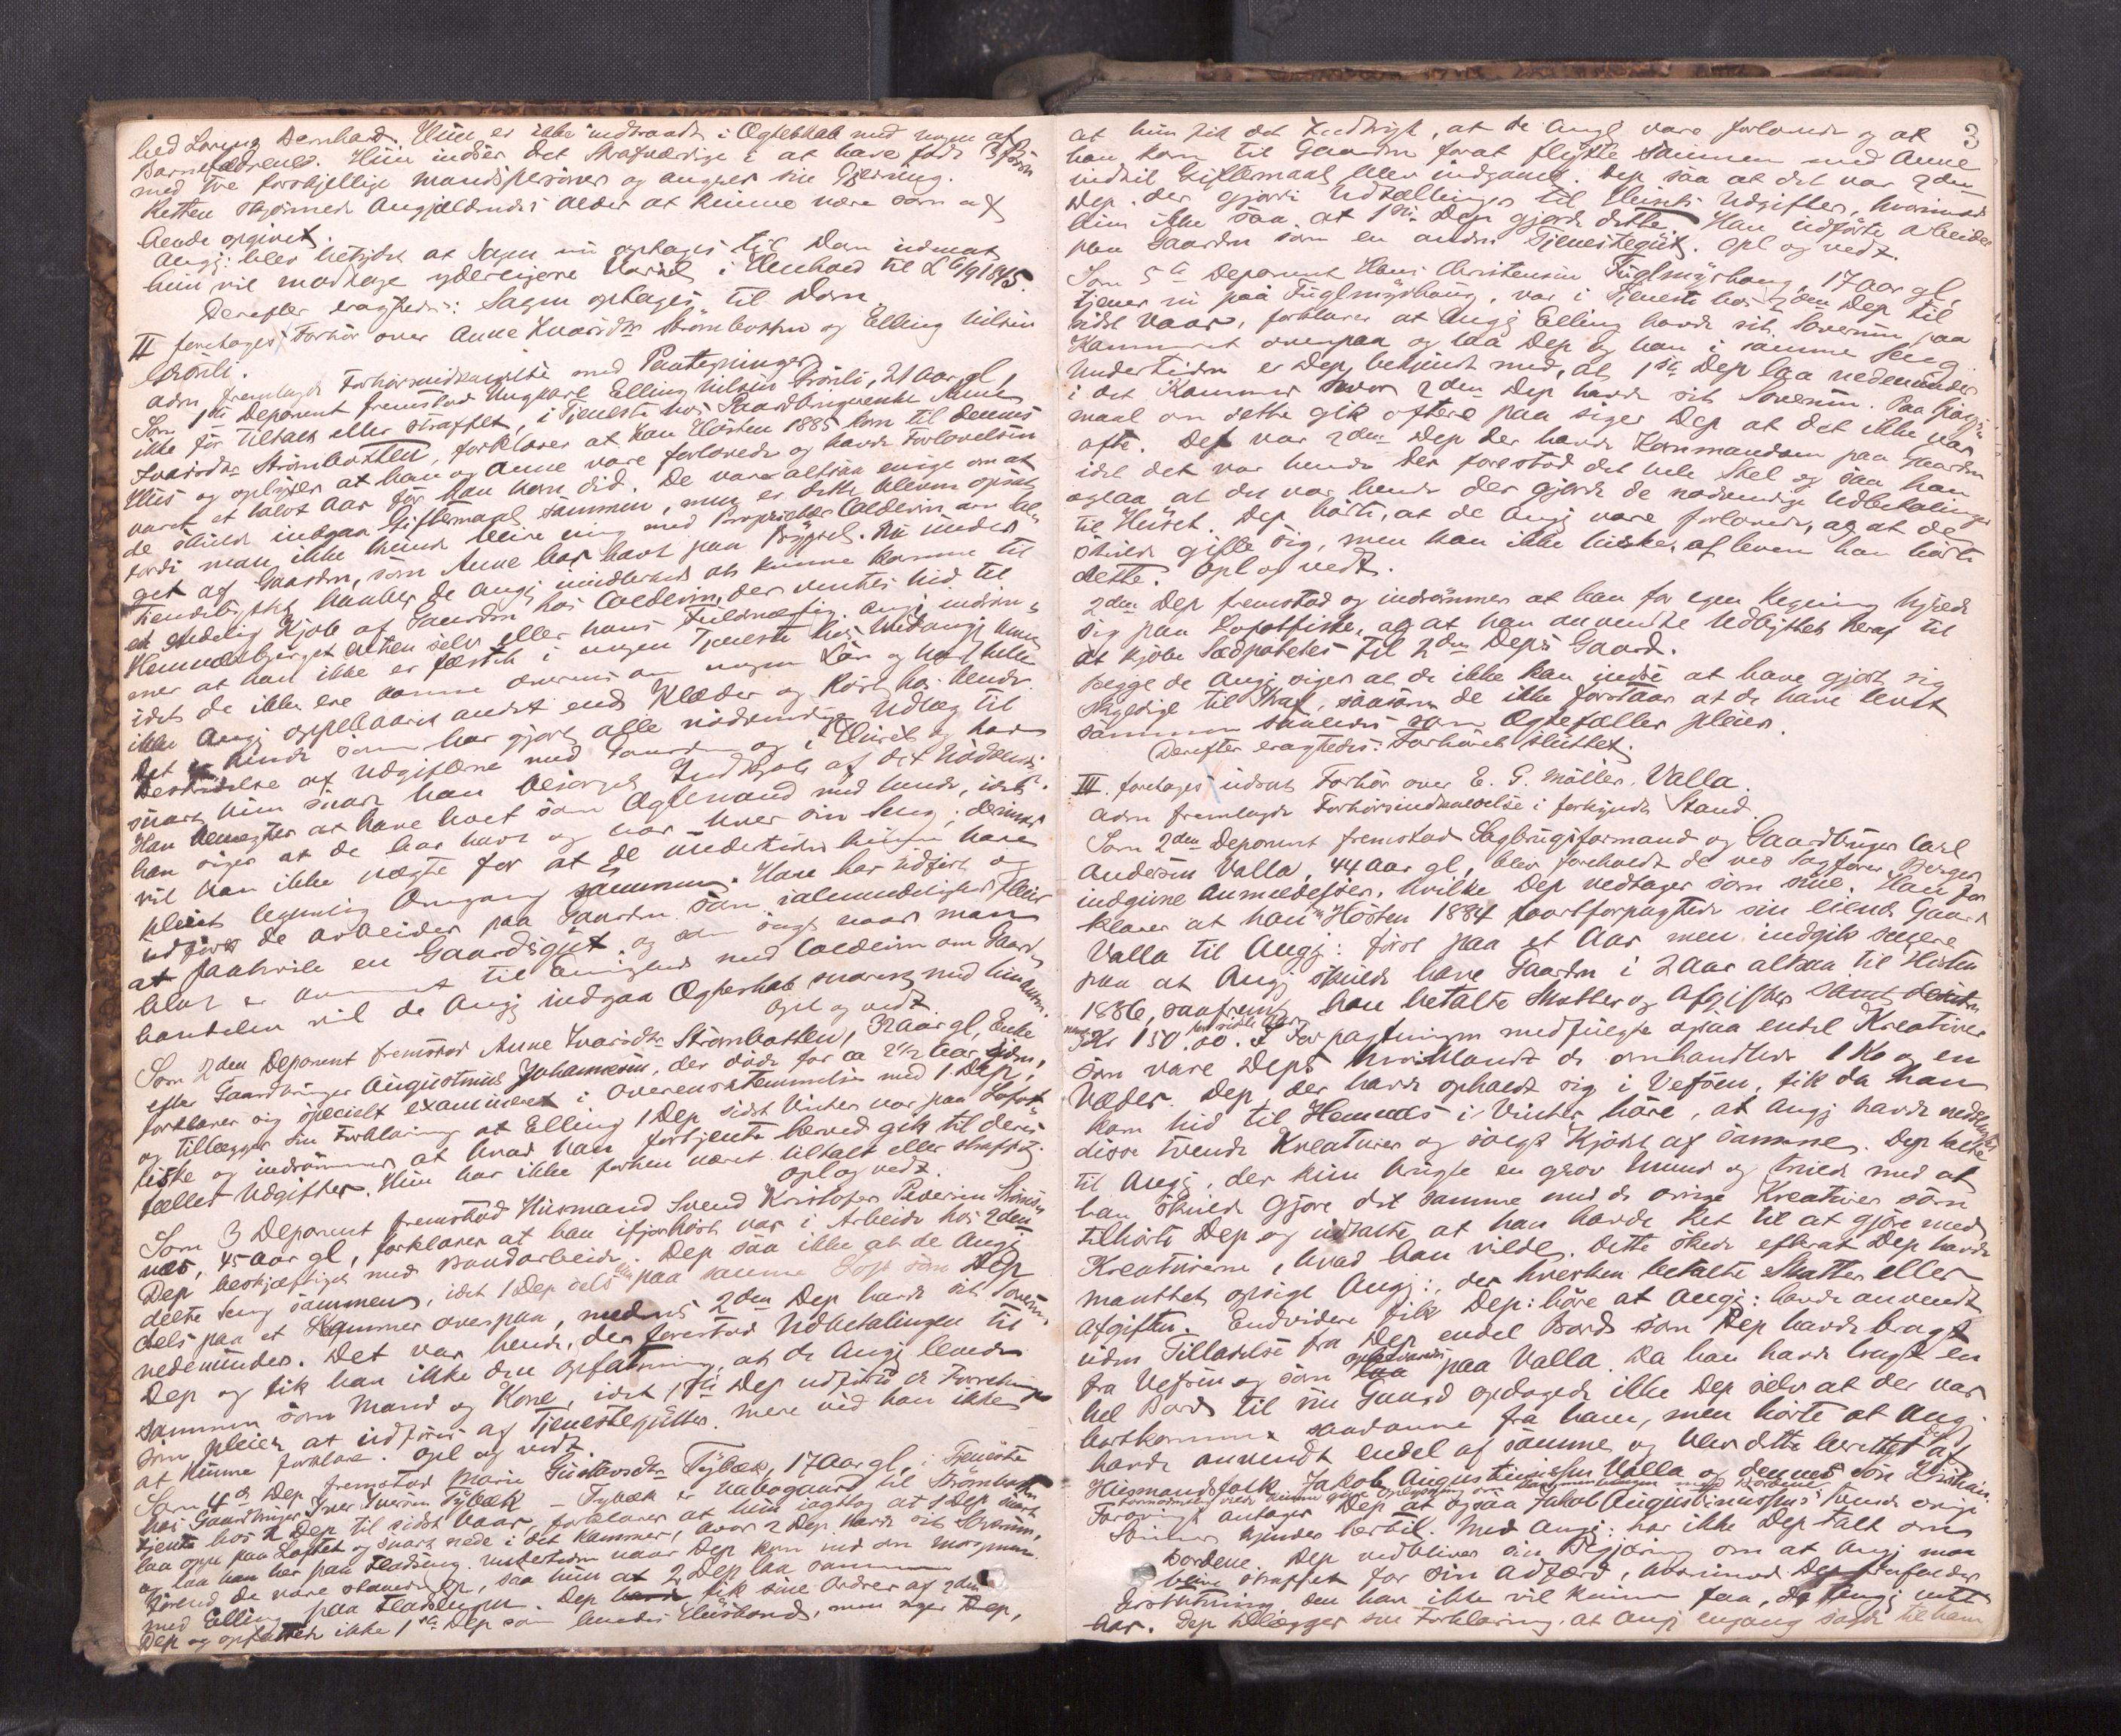 hed Lorens Bernhard. Hun er ikke indtraadt i Ægteskab med nogen af
Barnefædrene. Hun indser det Strafværdige i at have født 3 Børn
med tre forskjellige Mandspersoner og angrer sin Gjerning.
Retten skjønnede Angjældendes Alder at kunne være som af
hende opgivet.
Angj: blev betydet at Sagen nu optages til Dom idet
hun vil modtage yderligere Varsel i Henhold til L 6/9 1845.
Derefter eragtedes: Sagen optages til Dom.
II foretages Forhør over Anne Ivarsdtr Strømbotten og Elling Nilsen
Grønli.
Adm fremlagde Forhørsindkaldelse med Paategninger
Som 1ste Deponent fremstod Ungkarl Elling Nilsen Grønli, 21 Aar gl,
ikke før tiltalt eller straffet, i Tjeneste hos Gaardbrugerenke Anne
Ivarsdtr Strømbotten, forklarer at han Høsten 1885 kom til dennes
Hus og oplyser at han og Anne vare forlovede og havde Forlovelsen
varet et halvt Aar før han kom did. De vare altsaa enige om at
de skulde indgaa Giftermaal sammen, men er dette bleven opsat
fordi man ikke kunde blive enig med Proprietær Coldevin om
get af Gaarden, som Anne har havt paa Bygsel. Nu inden
Tiendebytttet haaber de Angj imidlertid at kunne komme til
et endelig Kjøb af Gaarden hos Coldevin, der ventes hid til
Hemnesbjerget enten selv eller hans Fuldmægtig. Angj indrøm-
mer at han ikke er fæstet i nogen Tjeneste hos Medangj Anne
idet de ikke ere komne overens om nogen Løn og har heller
ikke Angj oppebaaret andet end Klæder og Kost hos hende.
Det er hende som har gjort alle nødvendige Udlæg til
Bestridelse af Udgifterne med Gaarden og i Huset og har
snart hun snart han besørget Indkjøb af det Nødvendige.
Han benægter at have levet som Ægtemand med hende, idet
han siger at de har havt og har hver sin Seng; derimod
vil han ikke nægte for at de undertiden have
pleiet legemlig Omgang sammen. Han har udført og
udfører de Arbeider paa Gaarden som i almindelighed pleier
at paahvile en Gaardsgut, og som sagt naar man
blot er kommet til Enighed med Coldevin om Gaard
handelen vil de Angj indgaa Ægteskab snarest med hinanden.
Opl og vedt.
Som 2den Deponent fremstod Anne Ivarsdtr Strømbotten, 32 Aar gl, Enke
efter Gaardbruger Augustinus Johannesen, der døde for ca 2½ Aar siden,
forklarer sig specielt examineret i Overensstemmelse med 1 Dep,
og tillægger sin Forklaring at Elling 1 Dep sidst Vinter var paa Lofot-
fiske og indrømmer at hvad han fortjente herved gik til deres
fælles Udgifter. Hun har ikke forhen været tiltalt eller straffet.
opl og vedt.
Som 3 Deponent fremstod Husmand Svend Kristofer Pedersen Strøms
næs, 45 Aar gl, forklarer at han ifjor Høst var i Arbeide hos 2den
Dep beskjæftiget med Bondarbeide. Dep saa ikke at de Angj
delte Seng sammen, idet 1 Dep dels laa paa samme Loft som Dep
dels paa et Kammer ovenpaa, medens 2den Dep havde sit Soverum
nedenunder. Det var hende, der forestod Udbetalingen til
Dep og fik han ikke den Opfatning, at de Angj levede
sammen som Mand og Kone, idet 1ste Dep udførte de Forretninger
som pleier at udføres af Tjenestegutter. Mere ved han ikke
at kunne forklare. Opl og vedt.
Som 4de Dep fremstod Marie Gustavsdtr Tybæk, 17 Aar gl, i Tjeneste
hos Gaardbruger Iver Iversen Tybæk – Tybæk er Nabogaard til Strømbotten
tjente hos 2 Dep til sidst Vaar, forklarer at hun iagttog at 1 Dep snart
laa oppe paa Loftet og snart nede i det Kammer, hvor 2 Dep havde sit Soverum,
og laa han her paa Fladseng. Undertiden naar Dep kom ind om Morgenen
førend de vare staaede op, saa hun at 2 Dep laa sammen
med Elling paa Fladsengen. Dep fik sine Ordrer af 2den
Dep og opfattede ikke 1ste Dep som hendes Husbond, men siger Dep,
3
at hun fik det Indtryk, at de Angj vare forlovede og at
han kom til Gaarden forat flytte sammen med Anne
indtil Giftermaal blev indgaaet. Dep saa at det var 2den
Dep. der gjorde Udtællinger til Husets Udgifter, hvorimod
hun ikke saa at 1ste Dep gjorde dette. Han udførte Arbeider
paa Gaarden som en anden Tjenestegut. Opl og vedt.
Som 5te Deponent Hans Christensen Fuglmyrhaug, 17 Aar gl,
tjener nu paa Fuglmyrhaug, var i Tjeneste hos 2den Dep til
sidst Vaar, forklarer at Angj Elling havde sit Soverum paa
Kammeret ovenpaa og laa Dep og han i samme Seng
Undertiden er Dep bekjendt med, at 1ste Dep laa nedenunder
i det Kammer hvor 2den Dep havde sit Soverum. Paa Spørgs-
maal om dette gik oftere paa siger Dep at det ikke var
ofte. Det var 2den Dep der havde Kommandoen paa Gaarden
idet det var hende der forestod det hele Stel og saa han
ogsaa at det var hende der gjorde de nødvendige Udbetalinger
til Huset. Dep hørte, at de Angj vare forlovede, og at de
skulde gifte sig, men han ikke husker af hvem han hørte
dette. Opl og vedt.
2den Dep fremstod og indrømmer at han for egen Regning hyrede
sig paa Lofotfiske, og at han anvendte Udbyttet heraf til
at kjøbe Sædpoteter til 2den Deps Gaard.
Begge de Angj siger at de ikke kan indse at have gjort sig
skyldige til Straf, saasom de ikke forstaar at de have levet
sammen saaledes som Ægtefæller pleier.
Derefter eragtedes: Forhøret sluttet.
III. foretages udsat Forhør over E. G. Møller, Valla.
Adm fremlagde Forhørsindkaldelse i forkyndt Stand.
Som 2den Deponent fremstod Sagbrugsformand og Gaardbruger Carl
Andersen Valla, 44 Aar gl, blev foreholdt de ved Sagfører Berger
indgivne Anmeldelser, hvilke Dep vedtager som sine. Han for
klarer at han Høsten 1884 bortforpagtede sin eiende Gaard
Valla til Angj: først paa et Aar men indgik senere
paa at Angj skulde have Gaarden i 2 Aar altsaa til Høsten
1886, saafremt han betalte Skatter og Afgifter
Kr 150.00. I Forpagtningen medfulgte ogsaa endel Kreaturer
som vare Deps hvoriblandt de omhandlede 1 Ko og en
Væder. Dep, der havde opholdt sig i Vefsen, fik da han
kom hid til Hemnes i Vinter høre, at Angj havde nedslagtet
disse tvende Kreaturer og solgt Kjødet af samme. Dep talte
til Angj, der kun brugte en grov Mund og truede med at
han skulde gjøre det samme med de øvrige Kreaturer som
tilhørte Dep og udtalte at han havde Ret til at gjøre med
Kreaturerne, hvad han vilde. Dette skede efterat Dep havde
maattet opsige Angj:, der hverken betalte Skatter eller
Afgifter. Endvidere fik Dep: høre at Angj: havde anvendt
uden Tilladelse fra Dep endel Bord som Dep havde bragt
fra Vefsen og som opbevaredes paa Valla. Da han havde bragt en
hel Bord til sin Gaard opdagede ikke Dep selv at der var
bortkommen saadanne fra ham, men hørte at Angj
havde anvendt endel af samme og blev dette berettet af
Husmandsfolk Jakob Augustinussen Valla og dennes Søn Kristian.
Forøvrigt antager Dep at ogsaa Jakob Augustinussens tvende øvrige
Sønner kjender hertil. Med Angj: har ikke Dep talt om
Bordene. Dep vedbliver sin Begjæring om at Angj maa
blive straffet for sin Adfærd, hvorimod Dep frafalder
Erstatning den han ikke vil kunne faa, da Angj intet
har. Dep tillægger sin Forklaring at Angj engang sagde til ham